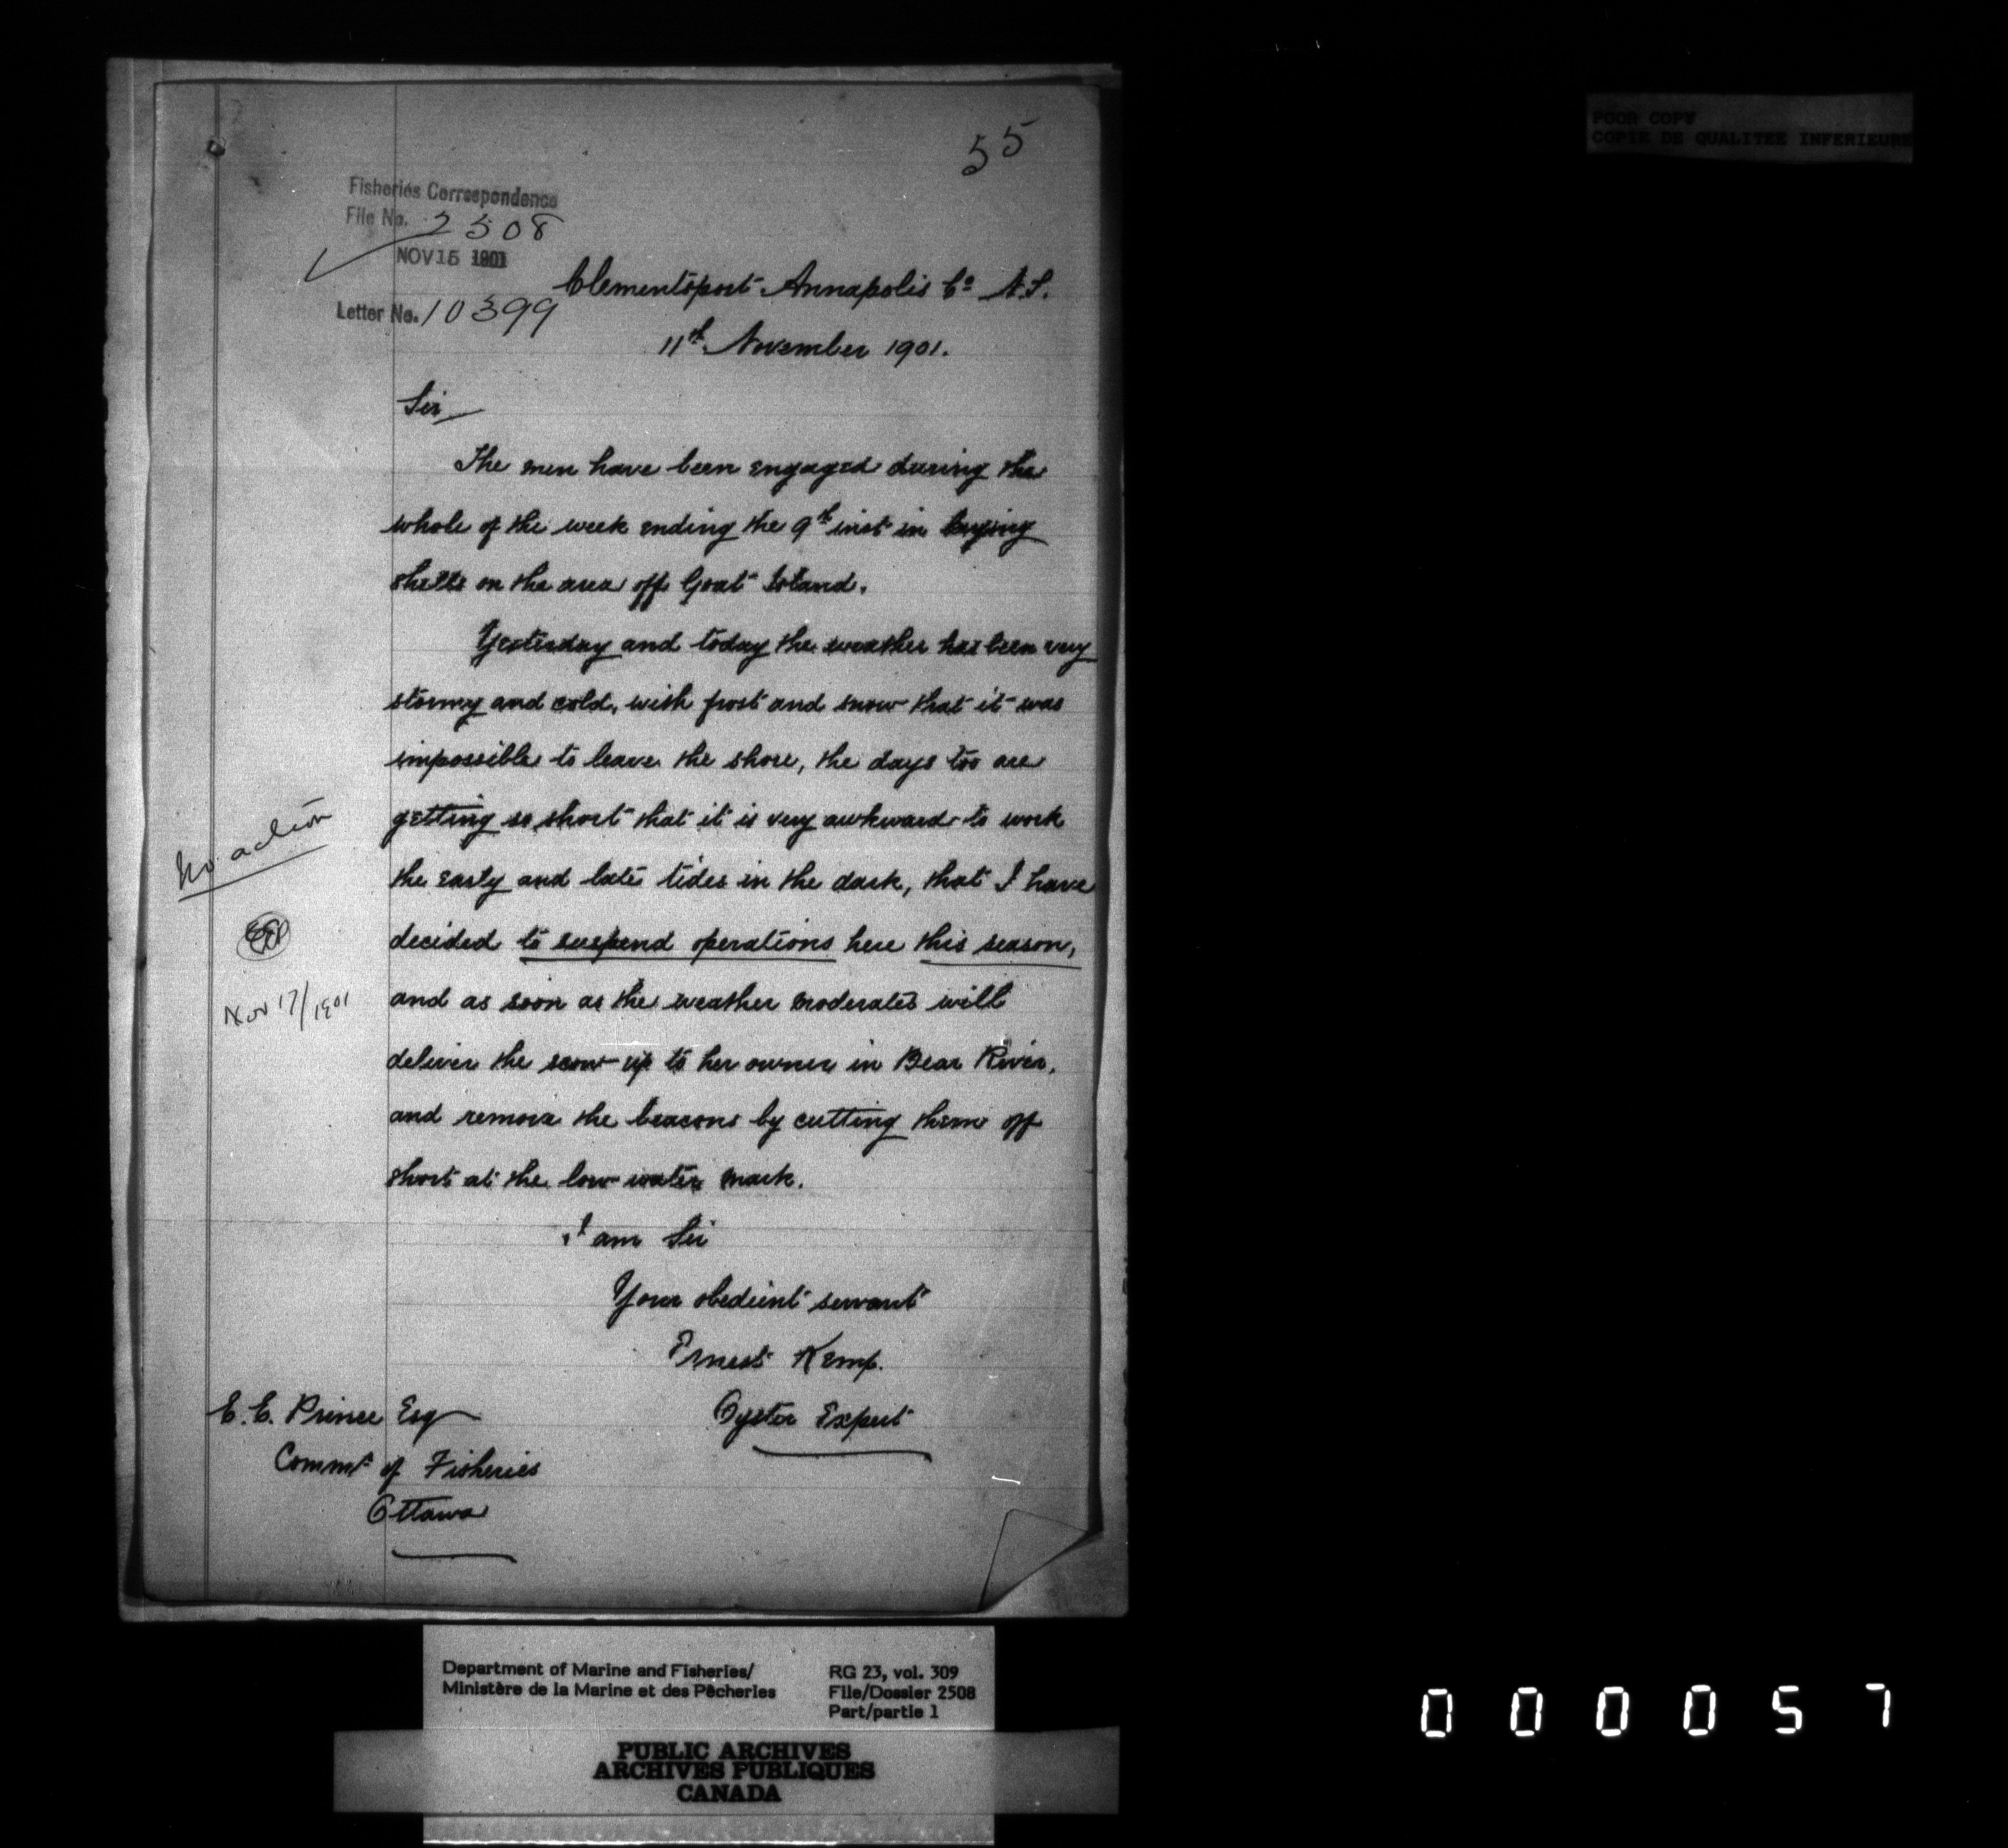 POOR COPY
COPIE DE QUALITEE INFERIEURE
55
Fisheries Correspondence
File No. 2508
NOV 15 1901
Letter No. 10399
Clementsport Annapolis Co N.S.
11th November 1901.
Sir
The men have been engaged during the
whole of the week ending the 9th inst in laying
shells on the area off Goat Island.
Yesterday and today the weather has been very
stormy and cold, with frost and snow that it was
impossible to leave the shore, the days too are
getting so short that it is very awkward to work
the early and late tides in the dark, that I have
decided to suspend operations here this season,
and as soon as the weather moderates will
deliver the scow up to her owner in Bear River,
and remove the beacons by cutting them off
short at the low water mark.
No action
Nov 17/1901
I am Sir
Your obedient servant
Ernest Kemp.
Oyster Expert
E. E. Prince Esq
Commr of Fisheries
Ottawa
Department of Marine and Fisheries/
Ministère de la Marine et des Pêcheries
RG 23, vol. 309
File/Dossier 2508
Part/partie 1
PUBLIC ARCHIVES
ARCHIVES PUBLIQUES
CANADA
000057